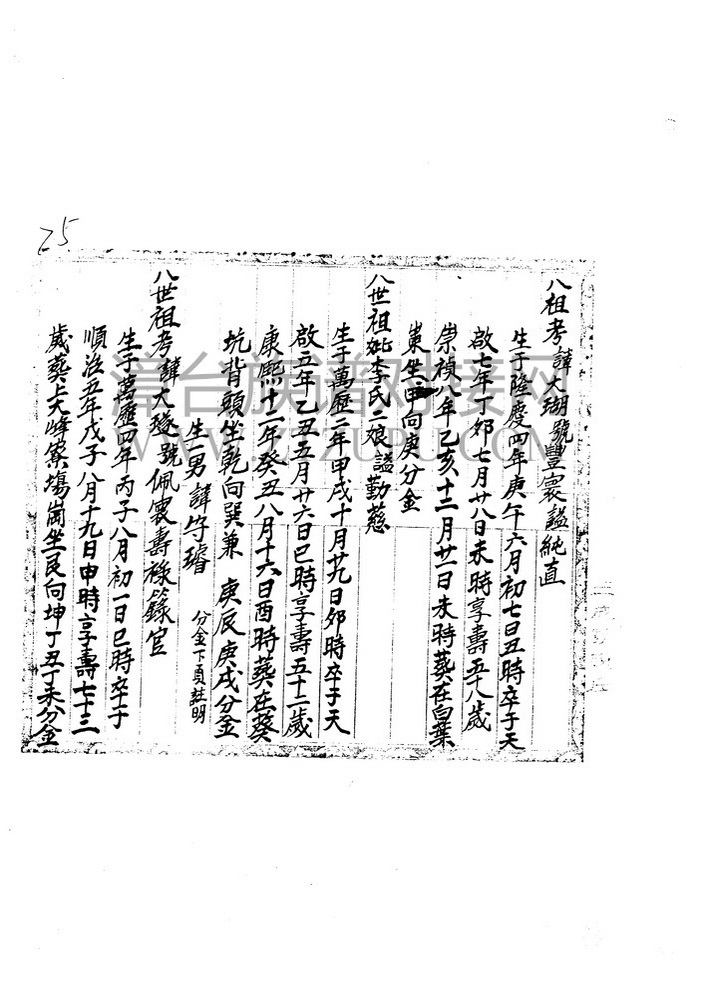 25
八祖考諱大瑚號豐寰謚純直
生于隆慶四年庚午六月初七日丑時卒于天
啟七年丁卯七月廿八日未時享壽五十八歲
崇禎八年乙亥十二月廿一日未時葬在白葉
東坐甲向庚分金
八世祖妣李氏二娘謚勤慈
生于萬歷二年甲戌十月廿九日卯時卒于天
啟五年乙丑五月廿六日巳時享壽五十二歲
康熙十二年癸丑八月十六日酉時葬在葵
坑背頭坐乾向巽兼 庚辰庚戌分金
生一男諱守璿 分金下頁註明
八世祖考諱大璲號佩寰壽祿籙官
生于萬歷四年丙子八月初一日巳時卒于
順治五年戊子八月十九日申時享壽七十三
歲葬上大峰寮塲崗坐艮向坤丁丑丁未分金
台族谱对接网
WWW.ZUPU.COM